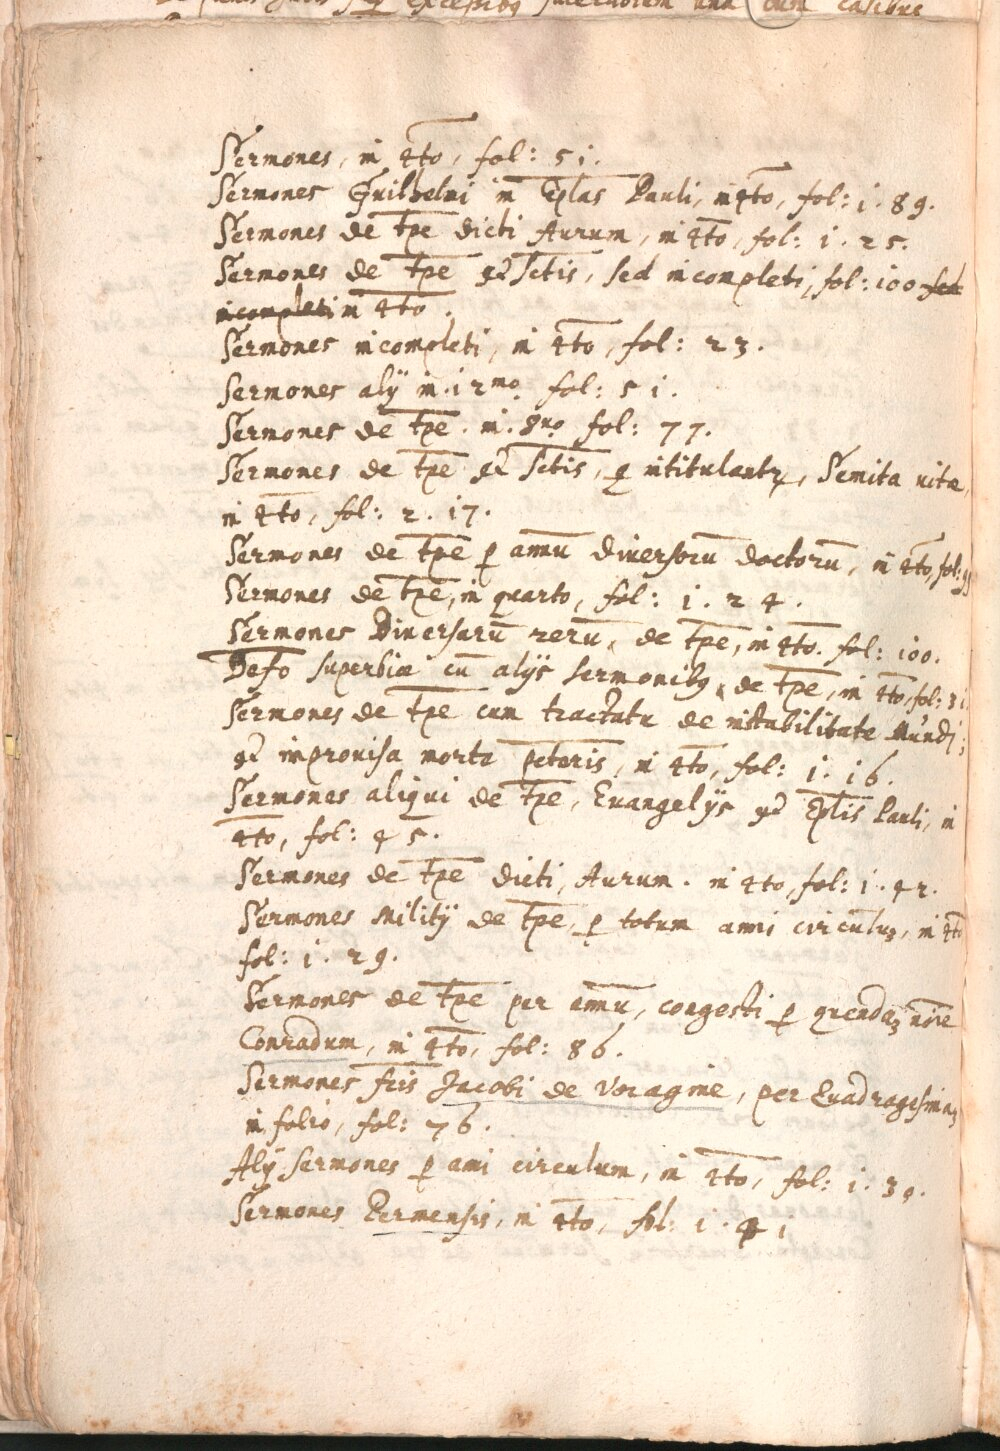 Sermones, in 4to, fol: 51.
Sermones Guilhelmi in Eplas Pauli, in 4to, fol: 1.89.
Sermones de tpe dicti Aurum, in 4to, fol: 1.25.
Sermones de tpe et Sctis, sed incompleti, fol: 100 sed
incompleti in 4to.
Sermones incompleti, in 4to, fol: 23.
Sermones alij in.12mo fol: 51.
Sermones de tpe. in.8uo fol: 77.
Sermones de tpe et Sctis, q intitulantr, Semita vitæ,
in 4to, fol: 2.17.
Sermones de tpe p annū diversorū doctorū, in 4to, fol:
Sermones de tpe, in quarto, fol: 1.24.
Sermones Diversarū rerū, de tpe, in 4to. fol: 100.
superbiæ cū alijs sermonibq de tpe, in 4to, fol: 31.
Sermones de tpe cum tractatu de instabilitate Mundj;
et improvisa morte peteris, in 4to, fol: 1.16.
Sermones aliqui de tpe, Euangelijs et Eplis Pauli, in
4to, fol: 45.
Sermones de tpe dicti, Aurum. in 4to, fol: 1.42.
Sermones Militij de tpe, p totum anni circuluz, in 4to
fol: 1.29.
Sermones de tpe per annū, congesti p quendaz noie
Conradum, in 4to, fol: 86.
Sermones fris Jacobi de Voragine, per Quadragesimaz
in folio, fol: 76.
Alij sermones p ani circulum, in 4to, fol: 1.39.
Sermones Permensis, in 4to, fol: 1.41